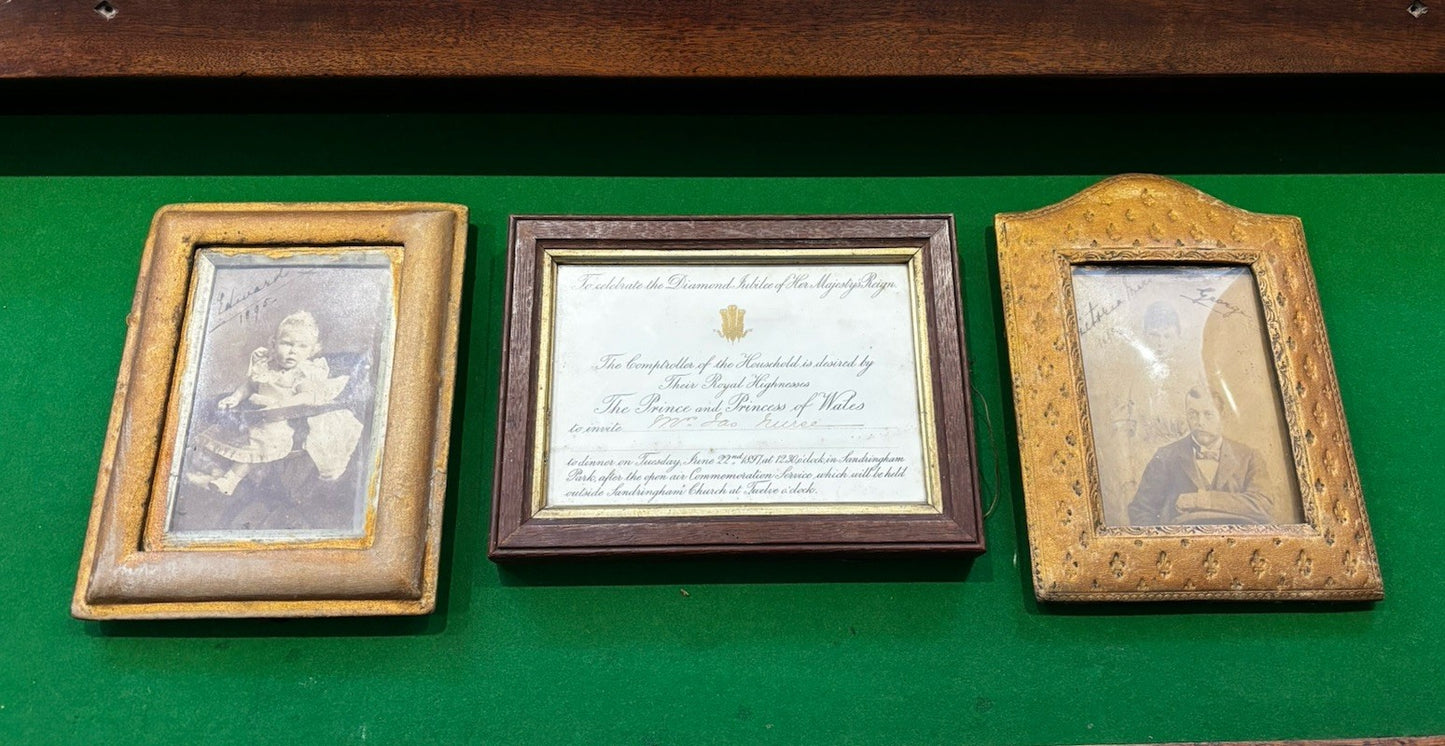 Edward
1895.
To celebrate the Diamond Jubilee of Her Majesty's Reign
The Comptroller of the Household is desired by
Their Royal Highnesses
The Prince and Princess of Wales
to invite Mr Jas Nurse
to dinner on Tuesday, June 22nd 1897, at 12.30 o'clock, in Sandringham
Park, after the open air Commemoration Service, which will be held
outside Sandringham Church at Twelve o'clock.
George